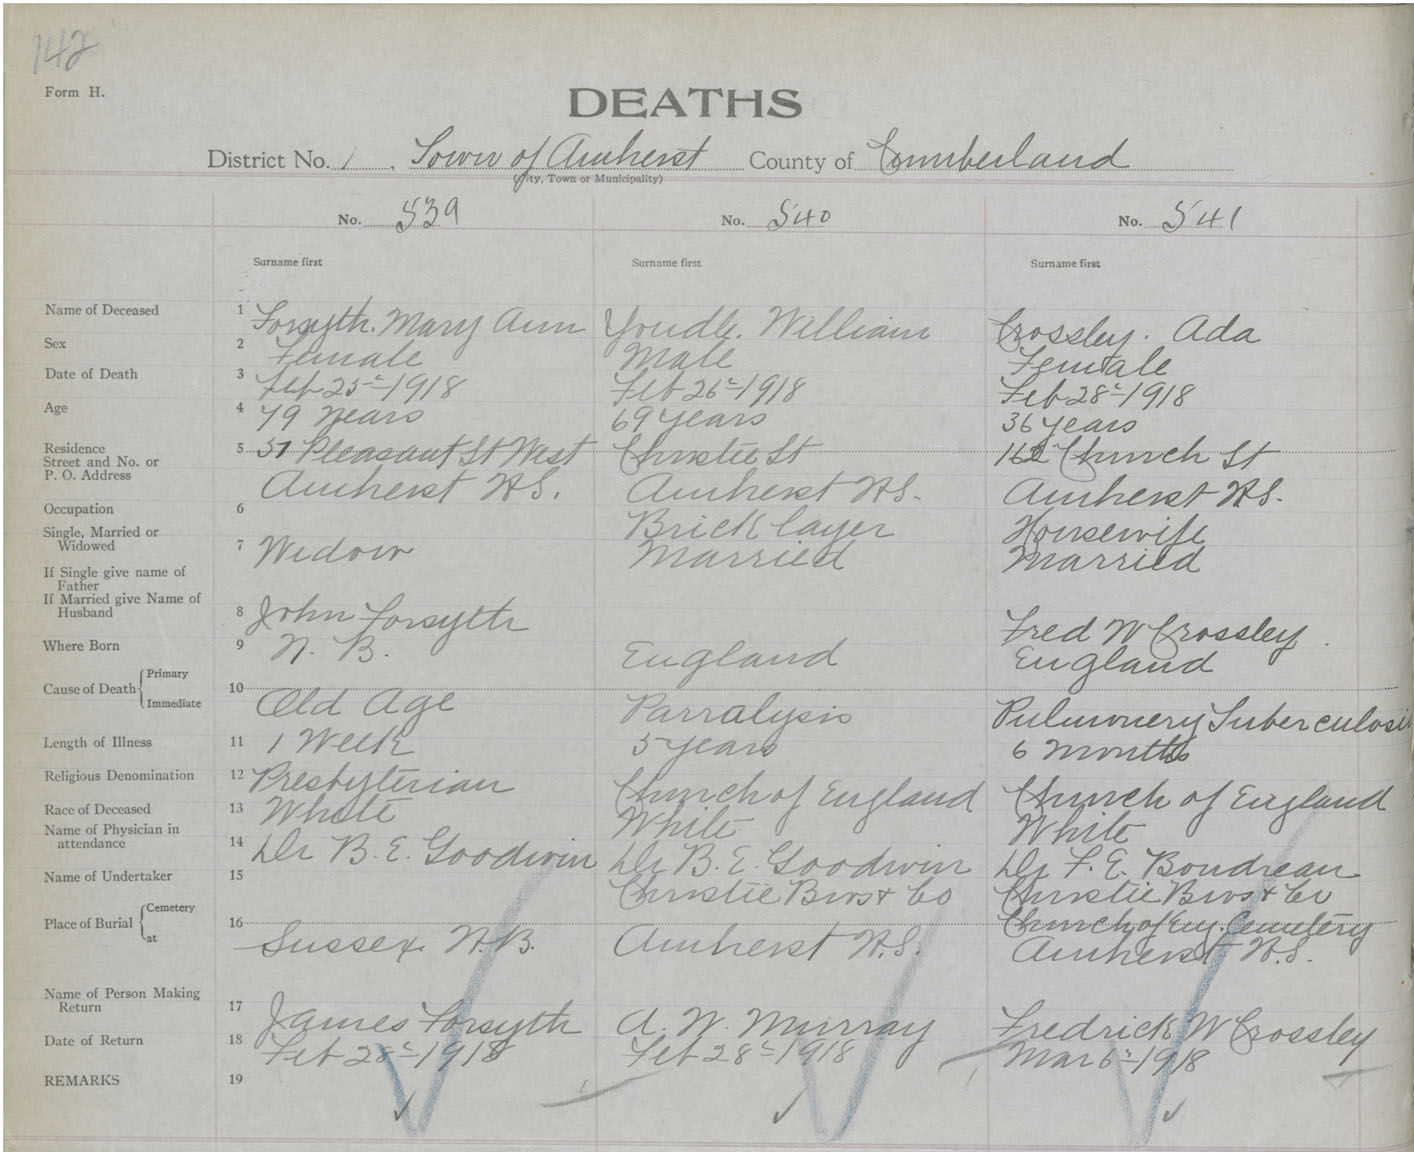 142
Form H.
DEATHS
District No. 1, Town of Amherst County of Cumberland
(City, Town or Municipality)
No. 539 No. 540 No. 541
Surname first Surname first Surname first
Name of Deceased 1 Forsyth. Mary Ann Youdle. William Crossley. Ada
Sex 2 Female Male Female
Date of Death 3 Feb 25th 1918 Feb 26th 1918 Feb 28th 1918
Age 4 79 years 69 years 36 years
Residence
Street and No. or 5 57 Pleasant St West Christie St 162 Church St
P. O. Address Amherst N.S. Amherst N.S. Amherst N.S.
Occupation 6 Brick layer Housewife
Single, Married or
Widowed 7 Widow Married Married
If Single give name of
Father
If Married give Name of
Husband 8 John Forsyth Fred W Crossley.
Where Born 9 N. B. England England
Cause of Death { Primary
10
Immediate Old Age Parralysis Pulmonery Tuberculosis
Length of Illness 11 1 Week 5 years 6 months
Religious Denomination 12 Presbyterian Church of England Church of England
Race of Deceased 13 White White White
Name of Physician in
attendance 14 Dr B. E. Goodwin Dr B. E. Goodwin Dr F. E. Boudreau
Name of Undertaker 15 Christie Bros & Co Christie Bros & Co
Place of Burial { Cemetery
16 Church of Eng. Cemetery
at Sussex N.B. Amherst N.S. Amherst N.S.
Name of Person Making
Return 17 James Forsyth A. W. Murray Fredrick W Crossley
Date of Return 18 Feb 28th 1918 Feb 28th 1918 Mar 6th 1918
REMARKS 19